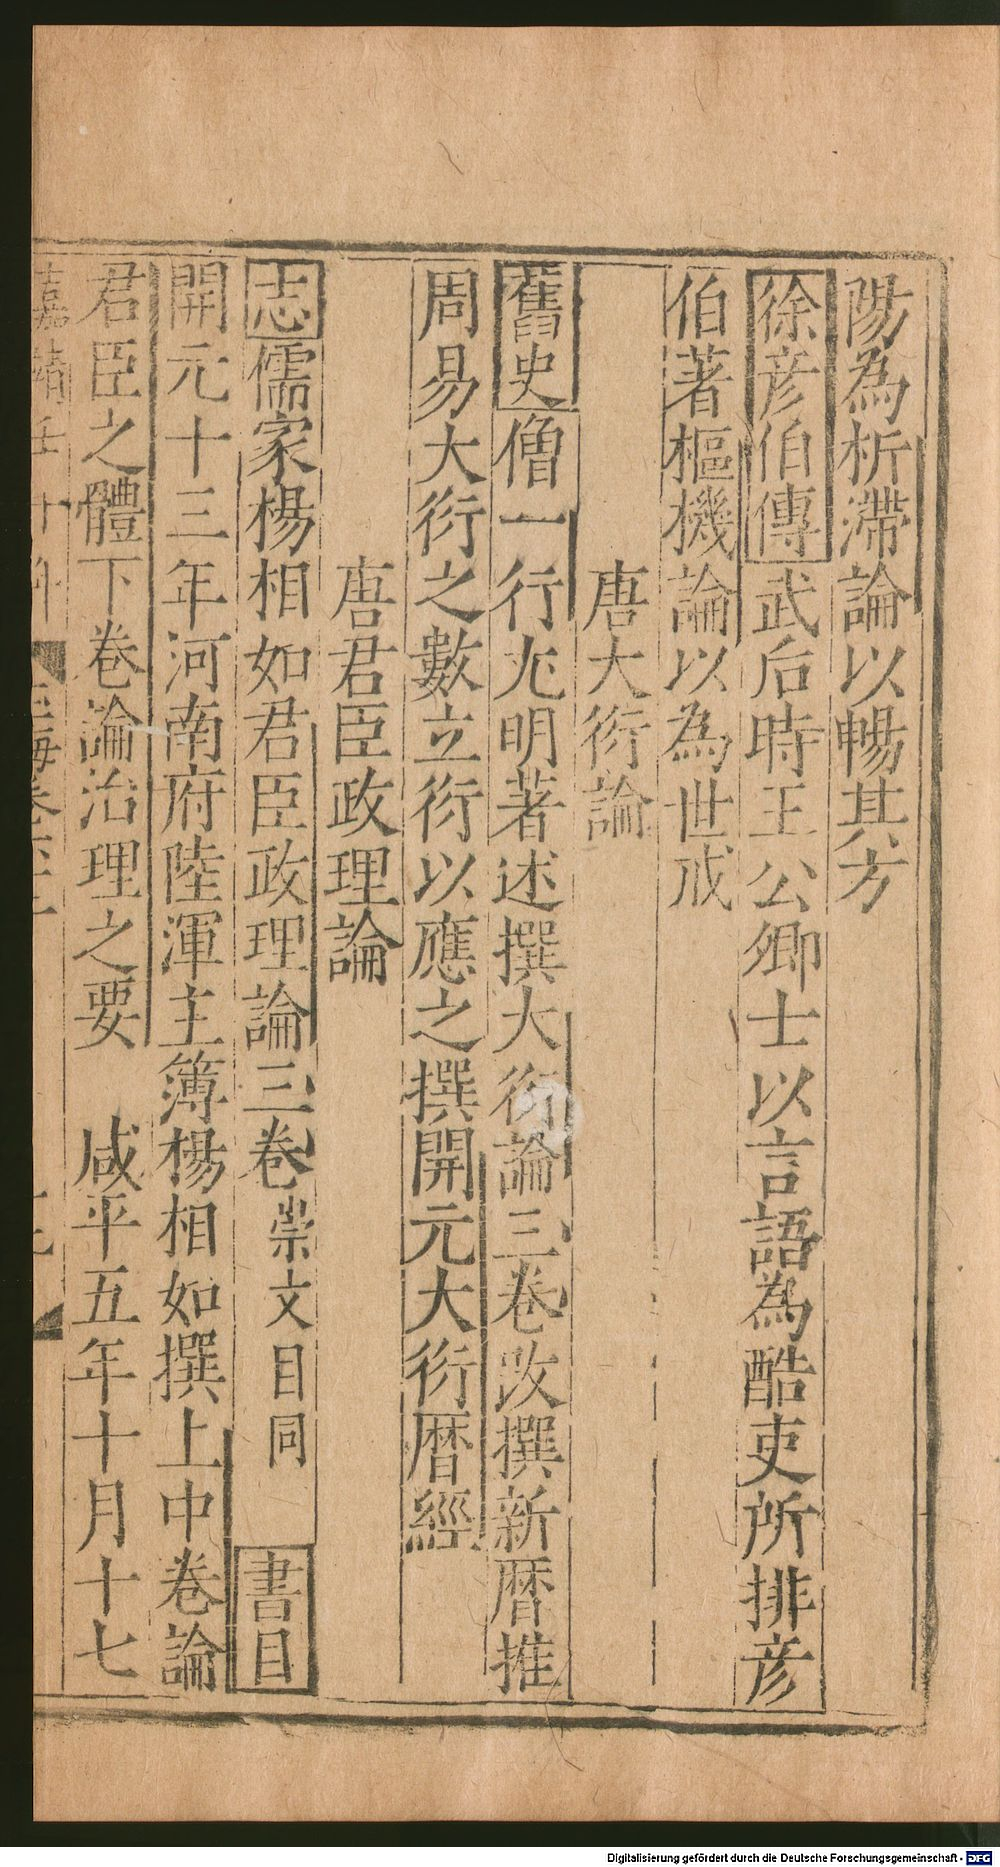 陽為析滯論以暢其方
徐彦伯傳武后時王公卿士以言語為酷吏所排彦
伯著樞機論以為世戒
唐大衍論
舊史僧一行尤明著述撰大衍論三卷改撰新暦推
周易大衍之數立衍以應之撰開元大衍暦經
唐君臣政理論
志儒家楊相如君臣政理論三卷崇文目同 書目
開元十三年河南府陸渾主簿楊相如撰上中卷論
君臣之體下卷論治理之要 咸平五年十月十七
Digitalisierung gefördert durch die Deutsche Forschungsgemeinschaft - DFG